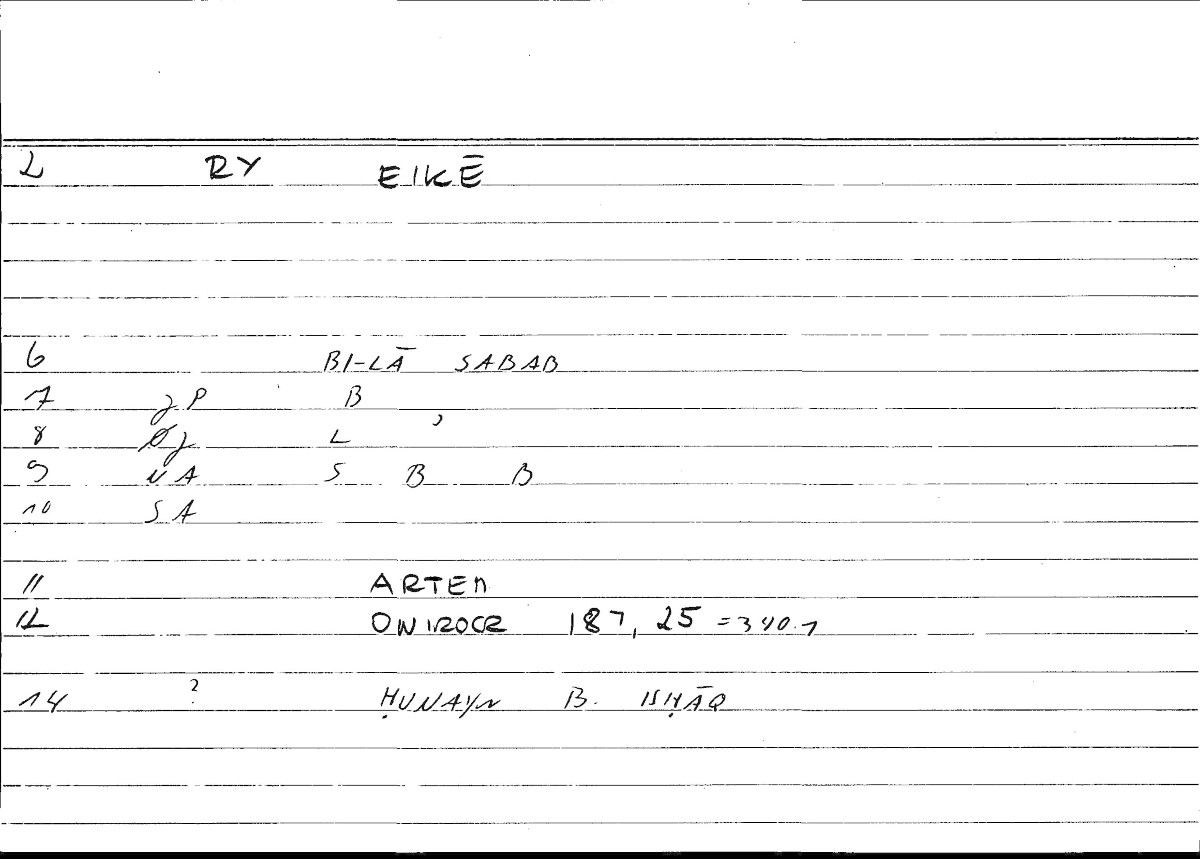 2 RY EIKĒ
6 BI-LĀ SABAB
7 JP B
8 ØJ L ʾ
9 NA S B B
10 SA
11 ARTEM
12 ONIROCR 187,25 =340.1
14 ? ḤUNAYN B. ISḤĀQ